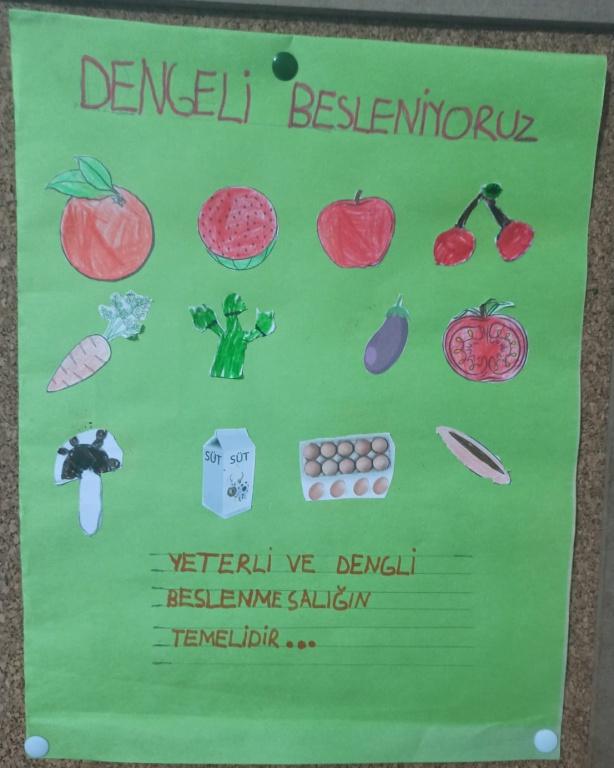 DENGELİ BESLENİYORUZ
SÜT SÜT
YETERLİ VE DENGLİ
BESLENME SALIĞIN
TEMELİDİR...